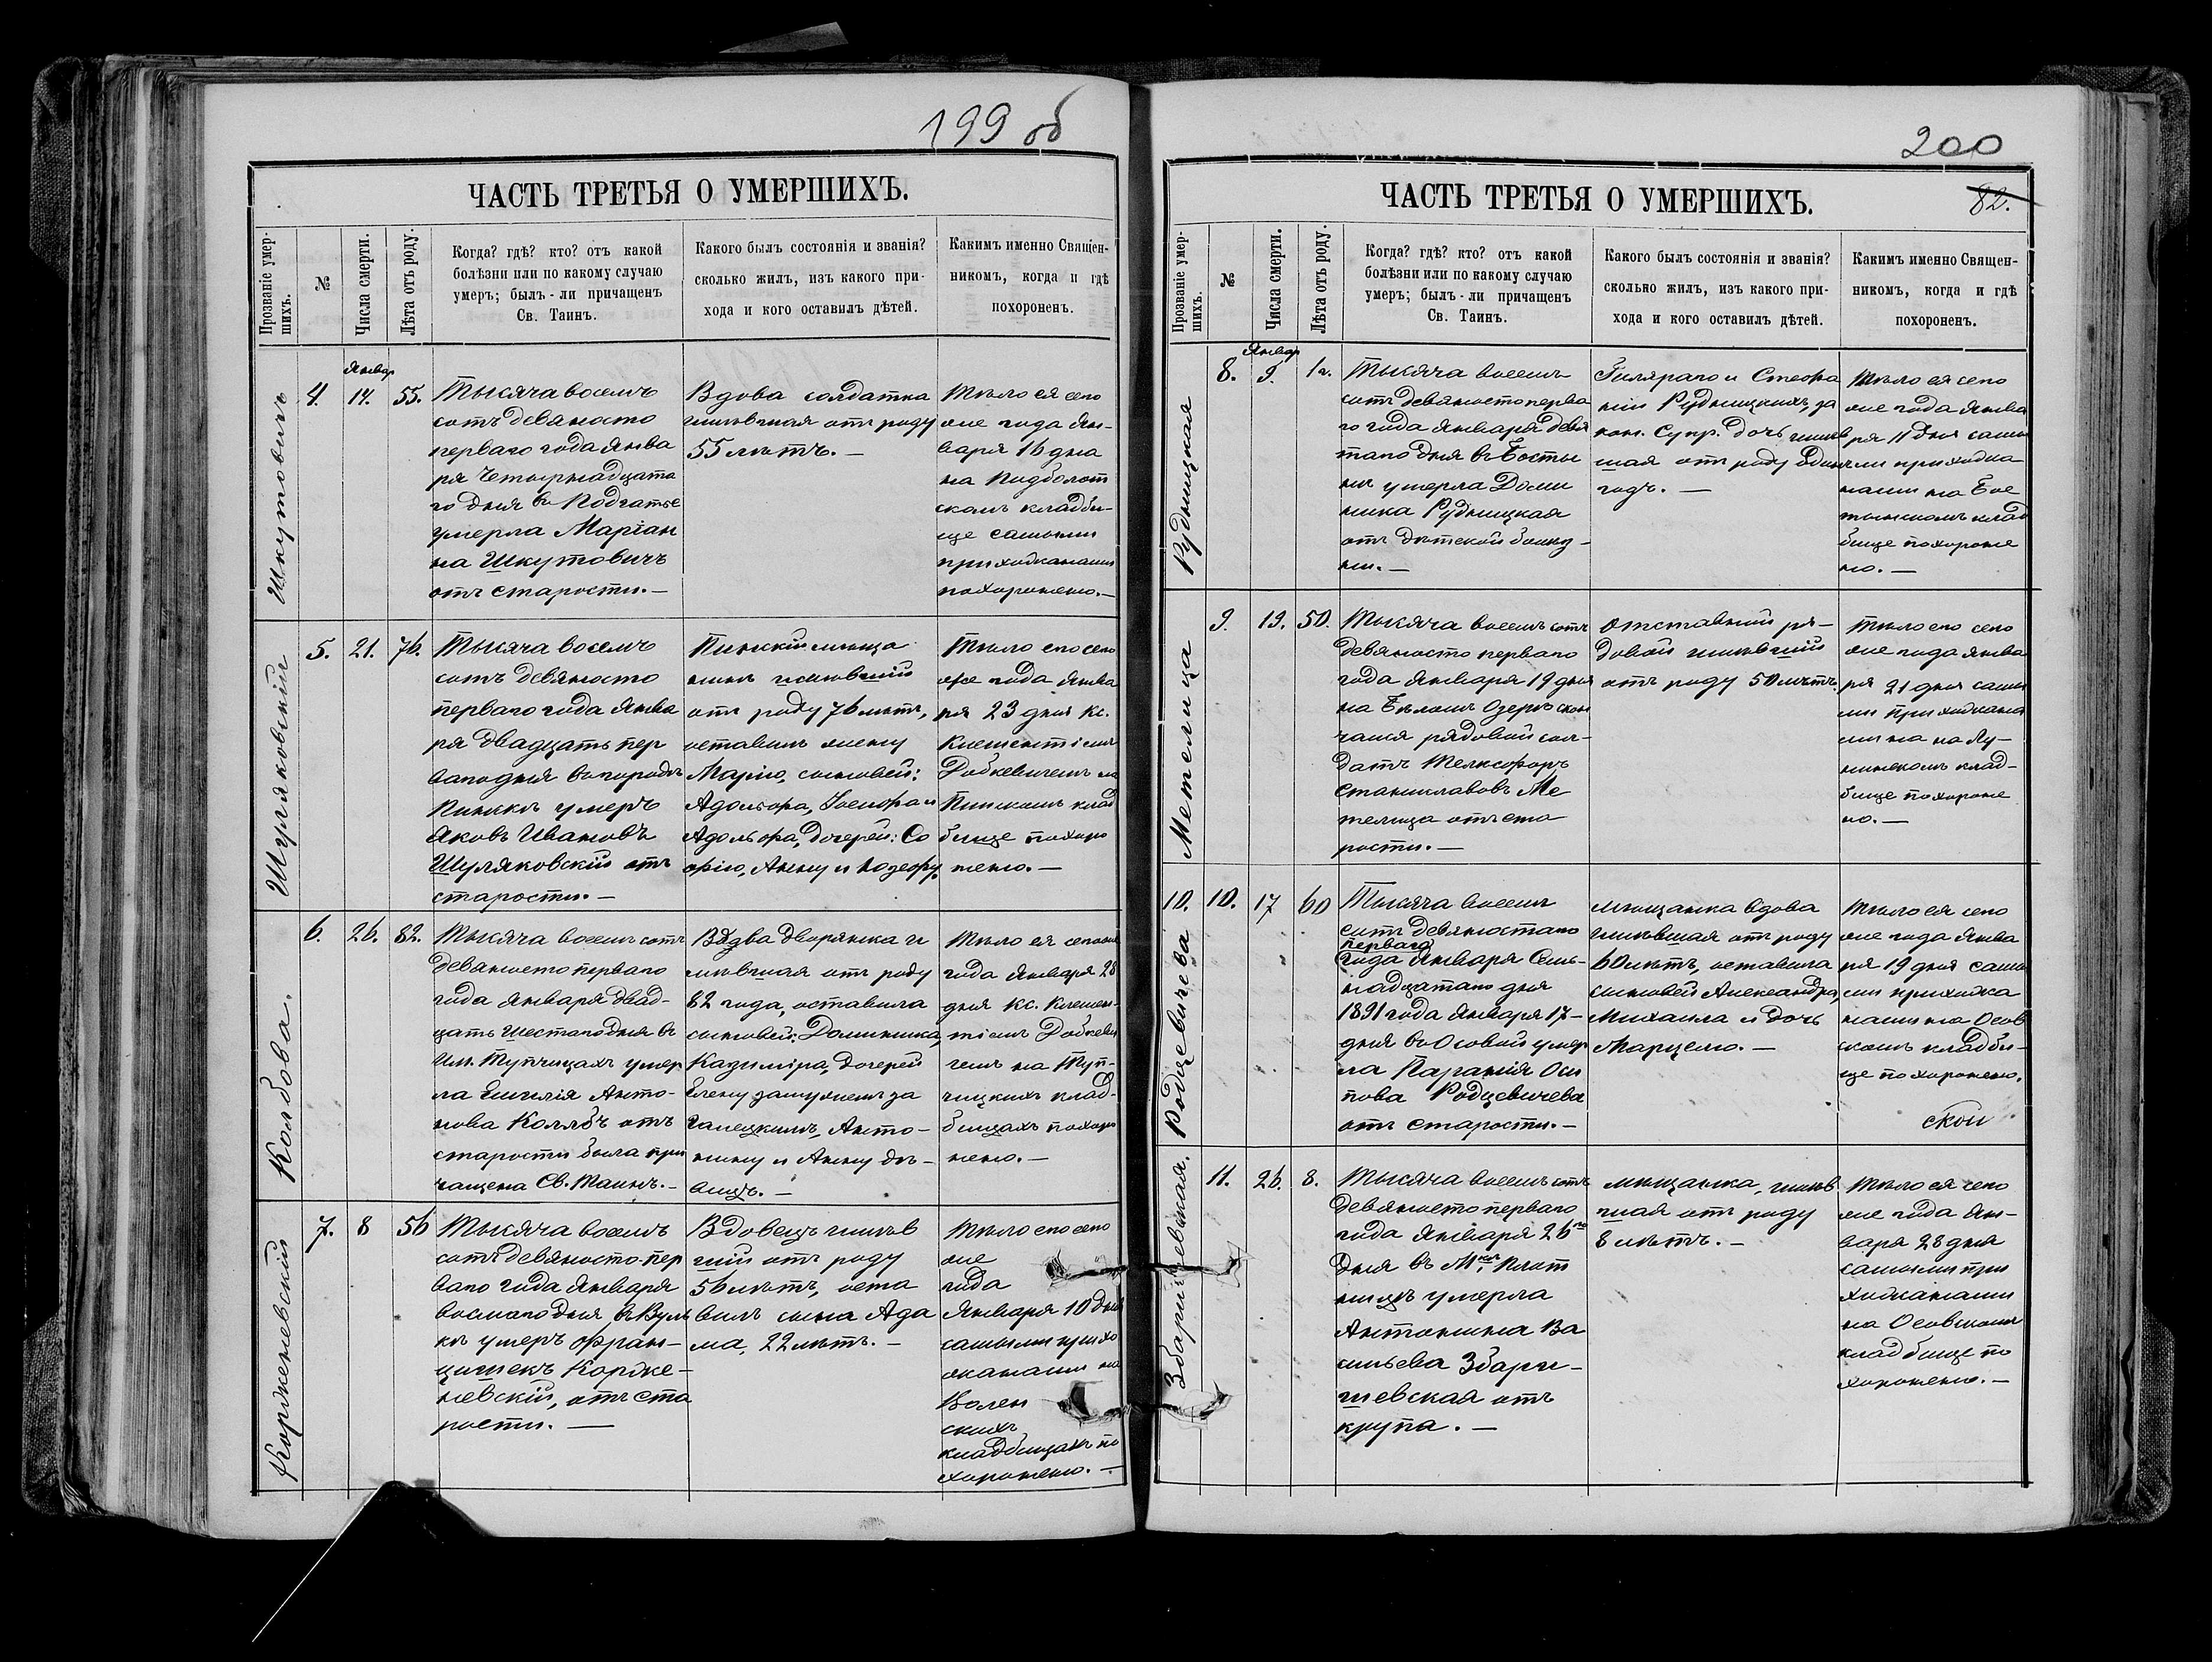 199 об
ЧАСТЬ ТРЕТЬЯ О УМЕРШИХЪ.
Прозваніе умер-
шихъ.
№
Числа смерти.
Лѣта отъ роду.
Когда? гдѣ? кто? отъ какой
болѣзни или по какому случаю
умеръ; былъ-ли причащенъ
Св. Таинъ.
Какого былъ состоянія и званія?
сколько жилъ, изъ какого при-
хода и кого оставилъ дѣтей.
Какимъ именно Священ-
никомъ, когда и гдѣ
похороненъ.
Шкутовичъ
4.
Январ
14.
55.
Тысяча восемь
сотъ девяносто
перваго года Янва
ря четырнадцата
го дня въ Подгатье
умерла Маріан
на Шкутовичъ
отъ старости.—
Вдова солдатка
жившая отъ роду
55 лѣтъ.—
Тѣло ея сего
же года Ян-
варя 16 дня
на Подболот
скомъ кладби-
ще самыми
прихожанами
похоронено.—
Шурляковскій
5.
21.
76.
Тысяча восемь
сотъ девяносто
перваго года Янва
ря двадцать пер
ваго дня въ городѣ
Пинскѣ умеръ
Яковъ Ивановъ
Шурляковскій отъ
старости.—
Пинскій мѣща
нинъ жившій
отъ роду 76 лѣтъ,
оставилъ жену
Марію, сыновей:
Адольфа, Іосифа и
Адольфа, дочерей: Со
фію, Анну и Юзефу.
Тѣло его сего
же года Янва
ря 23 дня Кс.
Климентіемъ
Добкевичемъ на
Пинскомъ клад
бище похоро
нено.—
Колбова.
6.
26.
82.
Тысяча восемь сотъ
девяносто перваго
года Января двад-
цать шестаго дня въ
им. Тупчицахъ умер-
ла Емилія Анто-
нова Коллбъ отъ
старости была при
чащена Св. Таинъ.—
Вдова дворянка и
жившая отъ роду
82 года, оставила
сыновей: Доминика,
Казиміра, дочерей
Елену замужемъ за
Галецкимъ, Анто-
нину и Анну дѣ-
вицъ.—
Тѣло ея сего же
года Января 28
дня Кс. Климен-
тіемъ Добкеви
чемъ на Туп-
чицкихъ клад-
бищахъ похоро
нено.—
Корженевскій
7.
8
56
Тысяча восемь
сотъ девяносто пер
ваго года Января
восмаго дня въ Вуль
кѣ умеръ Фран-
цишекъ Корже-
невскій, отъ ста
рости.—
Вдовецъ жив
шій отъ роду
56 лѣтъ, оста
вилъ сына Ада
ма, 22 лѣтъ.—
Тѣло его сего
же
года
Января 10 дня
самыми прихо
жанами на
Волен
скихъ
кладбищахъ по
хоронено.—
200
82.
ЧАСТЬ ТРЕТЬЯ О УМЕРШИХЪ.
Прозваніе умер-
шихъ.
№
Числа смерти.
Лѣта отъ роду.
Когда? гдѣ? кто? отъ какой
болѣзни или по какому случаю
умеръ; былъ-ли причащенъ
Св. Таинъ.
Какого былъ состоянія и званія?
сколько жилъ, изъ какого при-
хода и кого оставилъ дѣтей.
Какимъ именно Священ-
никомъ, когда и гдѣ
похороненъ.
Рудницкая
8.
Январ
9.
1 г.
Тысяча восемь
сотъ девяносто перва
го года Января девя
таго дня въ Босты
нѣ умерла Доми
ника Рудницкая
отъ дѣтской болѣз-
ни.—
Гиляраго и Стефа
ніи Рудницкихъ, за
кон. Супр. дочь жив
шая отъ роду одинъ
годъ.—
Тѣло ея сего
же года Янва
ря 11 дня самы
ми прихожа
нами на Бос
тынскомъ клад
бище похороне
но.—
Метелица
9.
19.
50.
Тысяча восемь сотъ
девяносто перваго
года Января 19 дня
на Бѣломъ Озерѣ скон
чался рядовой сол-
датъ Телесфоръ
Станиславовъ Ме
телица отъ ста
рости.—
Отставный ря-
довой жившій
отъ роду 50 лѣтъ.
Тѣло его сего
же года Янва
ря 21 дня самы
ми прихожана
ми на на Лу-
нинскомъ клад-
бище похороне
но.—
Родцевичева
10.
10.
17
60
Тысяча восемь
сотъ девяностаго
перваго
года Января Семь-
надцатаго дня
1891 года Января 17-
дня въ Осовой умер
ла Паранія Оси
пова Родцевичева
отъ старости.—
мѣщанка вдова
жившая отъ роду
60 лѣтъ, оставила
сыновей Александра,
Михаила и дочь
Марцелю.—
Тѣло ея сего
же года Янва
ря 19 дня самы
ми прихожа
нами на Осов
скомъ кладби-
ще похоронено.
ской
Збаришевская.
11.
26.
8.
Тысяча восемь сотъ
девяносто перваго
года Января 26го
дня въ Мкѣ Плот
ницѣ умерла
Антонина Ва
сильева Збари-
шевская отъ
крупа.—
мѣщанка, жив
шая отъ роду
8 лѣтъ.—
Тѣло ея сего
же года Ян-
варя 28 дня
самыми при
хожанами
на Осовскомъ
кладбище по
хоронено.—